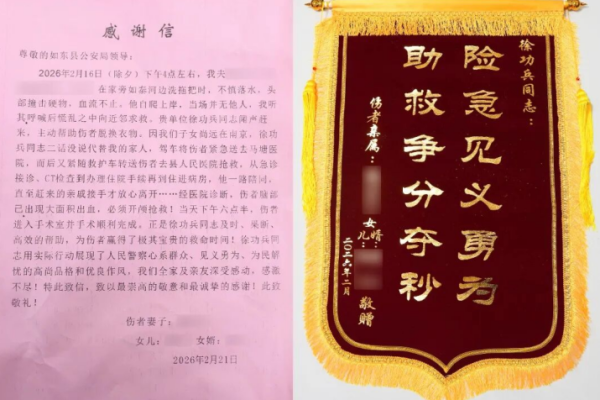 感谢信
尊敬的如东县公安局领导：
2026年2月16日（除夕）下午4点左右，我夫
在家旁如泰河边洗拖把时，不慎落水，头
部撞击硬物，血流不止，他自爬上岸，当场并无他人，我听
其呼喊后慌乱之中向近邻求救，贵单位徐功兵同志闻声赶
来，主动帮助伤者脱换衣物，因我们子女尚远在南京，徐功
兵同志二话没说代替我的家人，驾车将伤者紧急送去马塘医
院，而后又紧随救护车转送伤者去县人民医院抢救，从急诊
接诊、CT检查到办理住院手续再到住进病房，他一路陪同，
直至赶来的亲戚接手才放心离开……经医院诊断，伤者脑部
已出现大面积出血，必须开颅抢救！当天下午六点半，伤者
送入手术室并手术顺利完成。正是徐功兵同志及时、果断、
高效的帮助，为伤者赢得了极其宝贵的救命时间！徐功兵同
志用实际行动展现了人民警察心系群众、见义勇为、为民解
忧的高尚品格和优良作风，我们全家及亲友深受感动，感激
不尽！特此致信，致以最崇高的敬意和最诚挚的感谢！此致
敬礼！
伤者妻子：
女儿： 女婿：
2026年2月21日
徐功兵同志：
险急见义勇为
助救争分夺秒
伤者亲属：
女儿： 女婿：
二〇二六年二月
敬赠